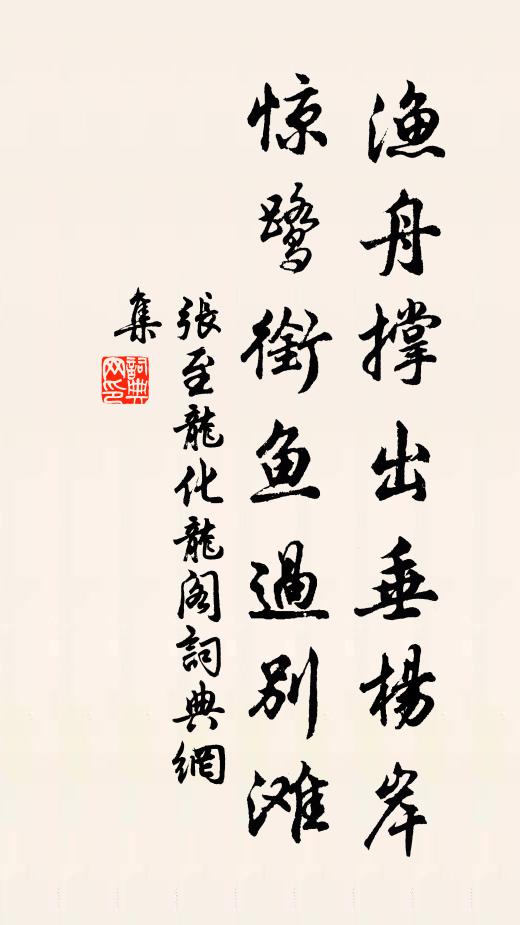 渔舟撑出垂杨岸
惊鹭衔鱼過别滩
張至龍化龍阁詞典網
集
詞典
网印